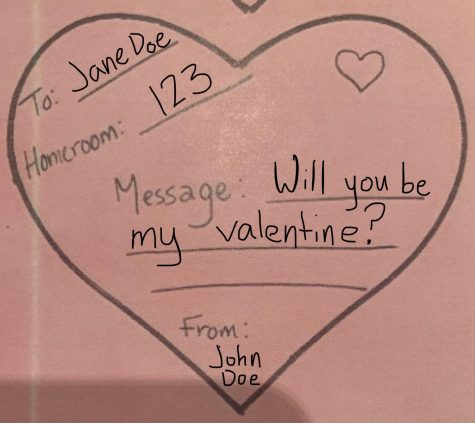 To: Jane Doe
Homeroom: 123
Message: Will you be
my valentine?
From:
John
Doe